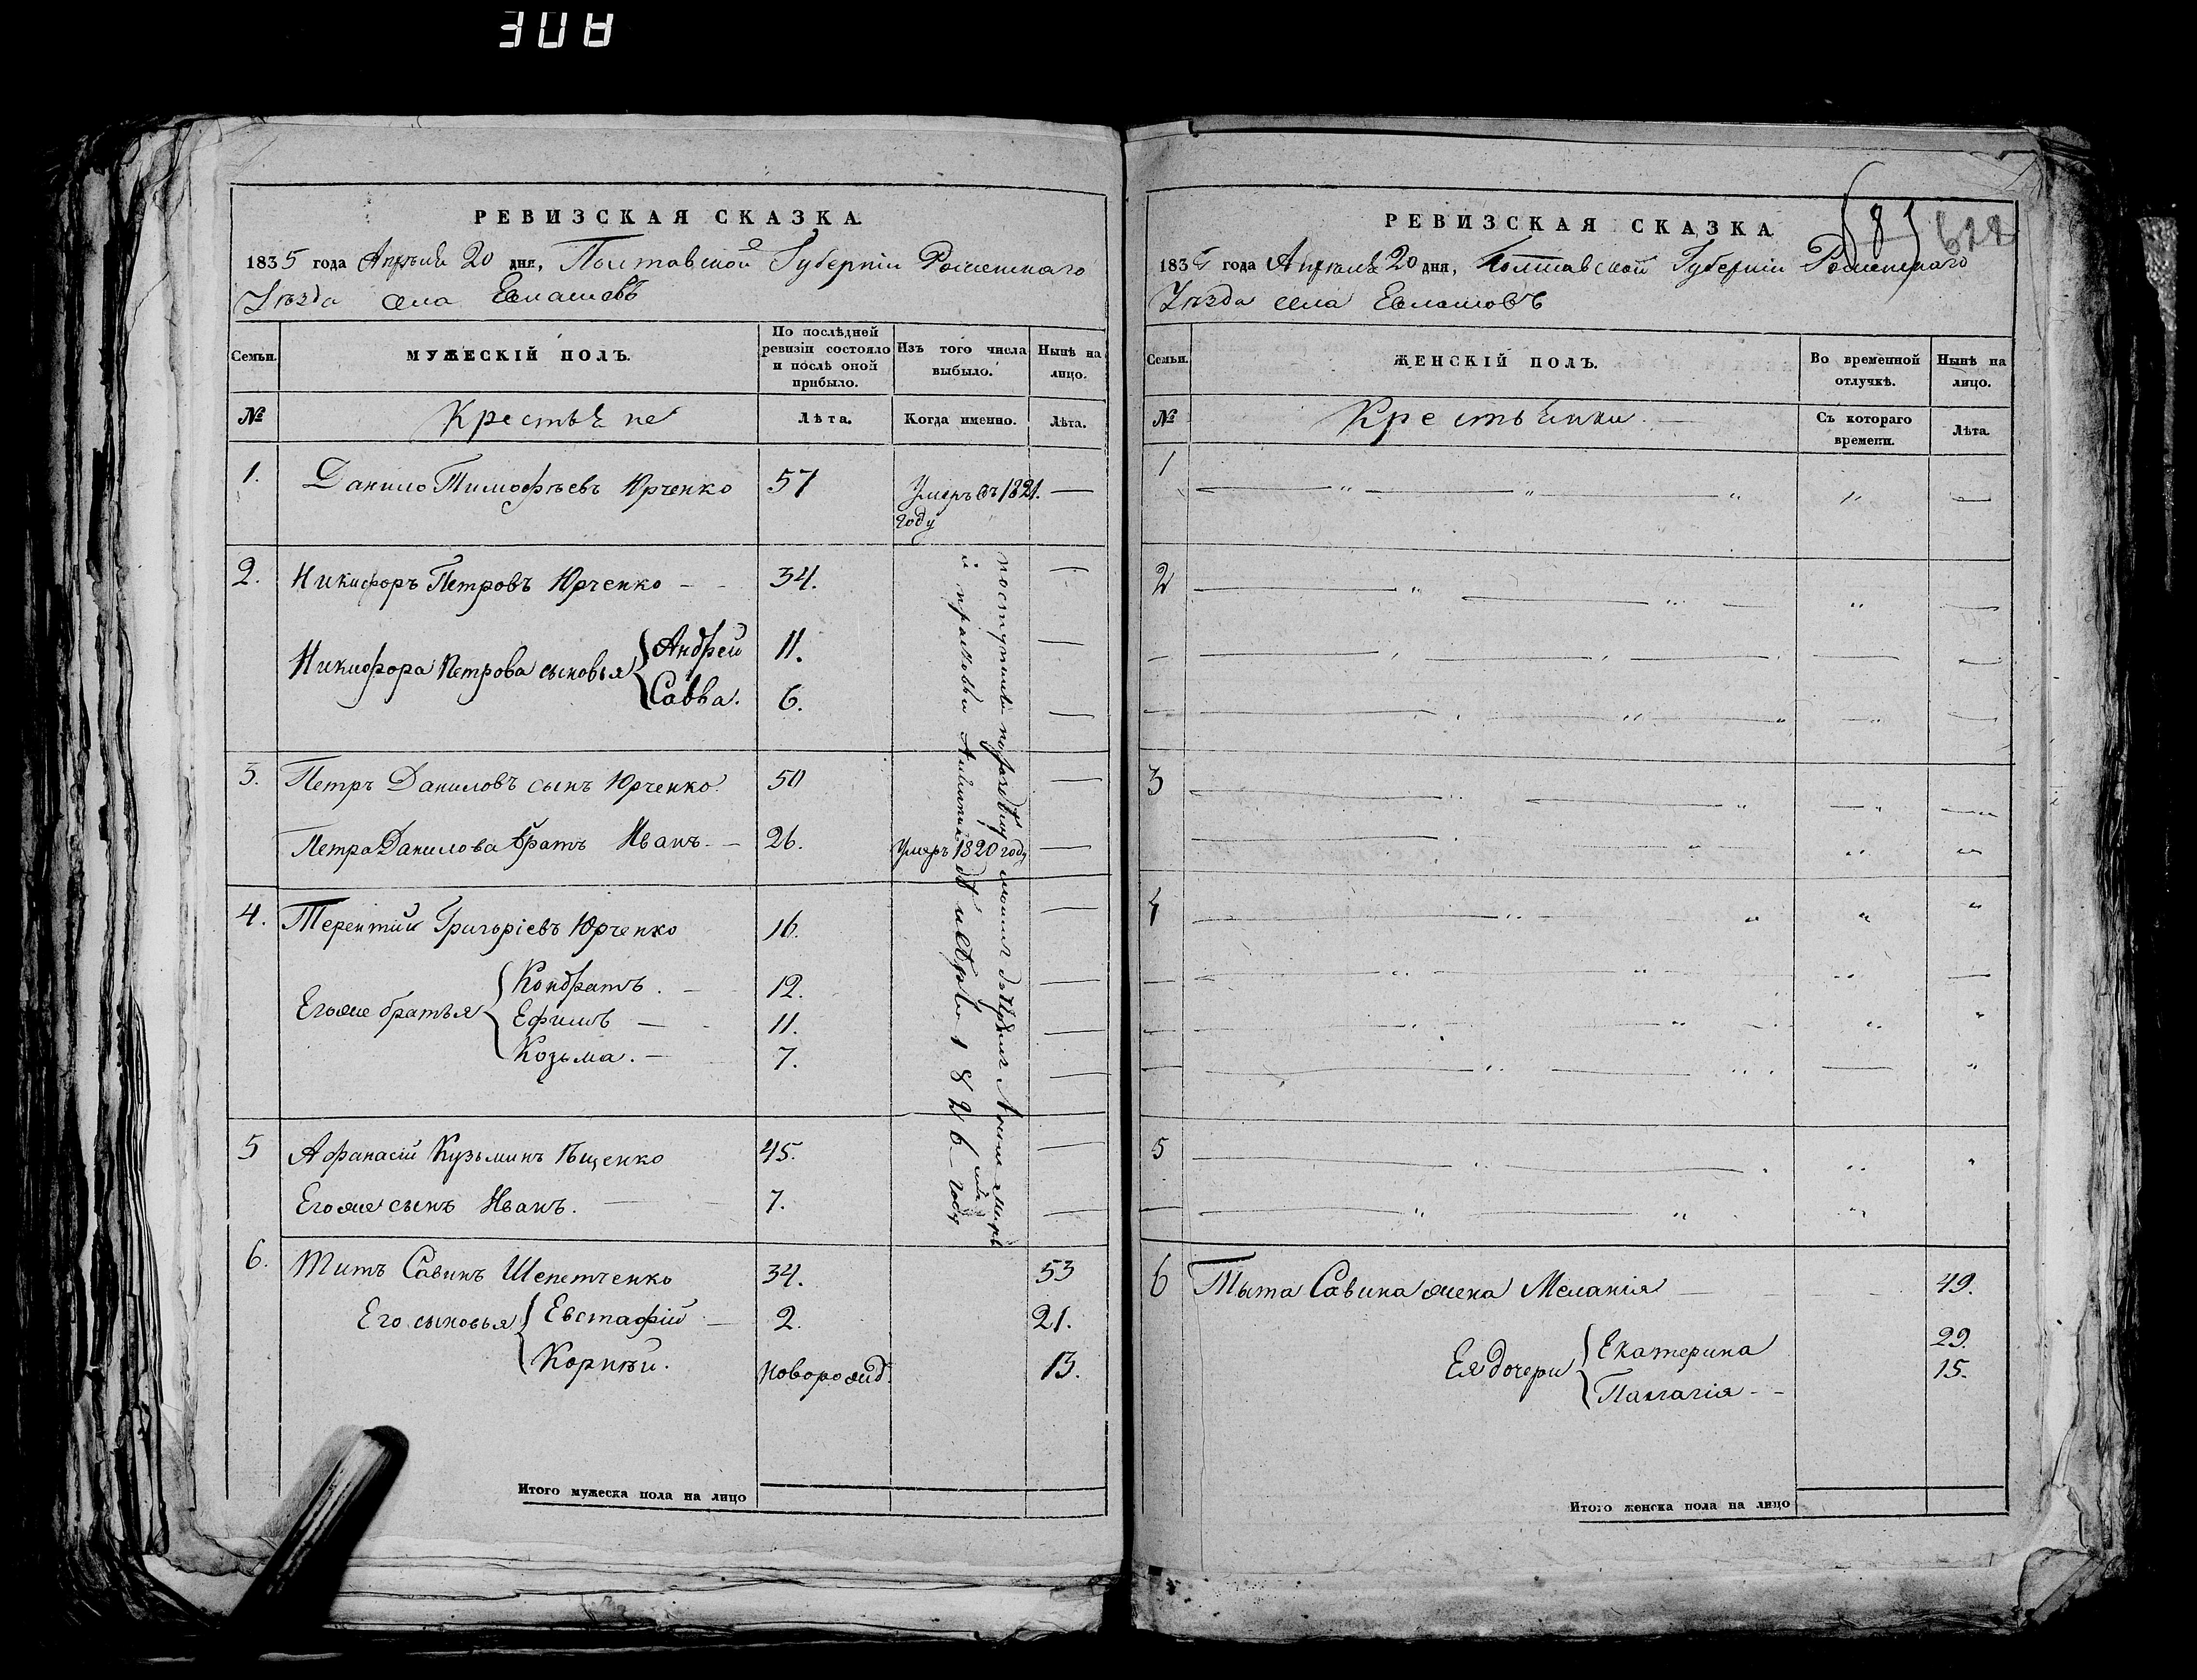 РЕВИЗСКАЯ СКАЗКА
1835 года Апреля 20 дня, Полтавской Губерніи Роменскаго
Уѣзда села Евлашовъ
Семьи.
МУЖЕСКІЙ ПОЛЪ.
По послѣдней ревизіи состояло и послѣ оной прибыло.
Изъ того числа выбыло.
Нынѣ на лицо.
№
Крестьяне
Лѣта.
Когда именно.
Лѣта.
1. Данило Тимофѣевъ Юрченко 57 Умеръ въ 1821. —
году
2. Никифоръ Петровъ Юрченко 34. —
Никифора Петрова сыновья Андрей 11. —
Савва. 6. —
3. Петръ Даниловъ сынъ Юрченко 50 —
Петра Данилова братъ Иванъ. 26. Умеръ 1820 году —
4. Терентий Григоріевъ Юрченко 16. —
Егоже братья Кондратъ. 12. —
Ефимъ 11.
Козьма. 7. —
5 Афанасій Кузьминъ Ищенко 45. —
Егоже сынъ Иванъ. 7. —
1826 году
6. Титъ Савинъ Шепетченко 34. 53
Его сыновья Евстафій 2. 21.
Корнѣй. Новорожд. 13.
Итого мужеска пола на лицо
(8) 622
РЕВИЗСКАЯ СКАЗКА
1835 года Апреля 20 дня, Полтавской Губерніи Роменскаго
Уѣзда села Евлашовъ
Семьи.
ЖЕНСКІЙ ПОЛЪ.
Во временной отлучкѣ.
Нынѣ на лицо.
№
Крестьянки
Съ котораго времени.
Лѣта.
1
2
3
4
5
6 Тыта Савина жена Меланія 49.
Ея дочери Екатерина 29.
Палагія 15.
Итого женска пола на лицо